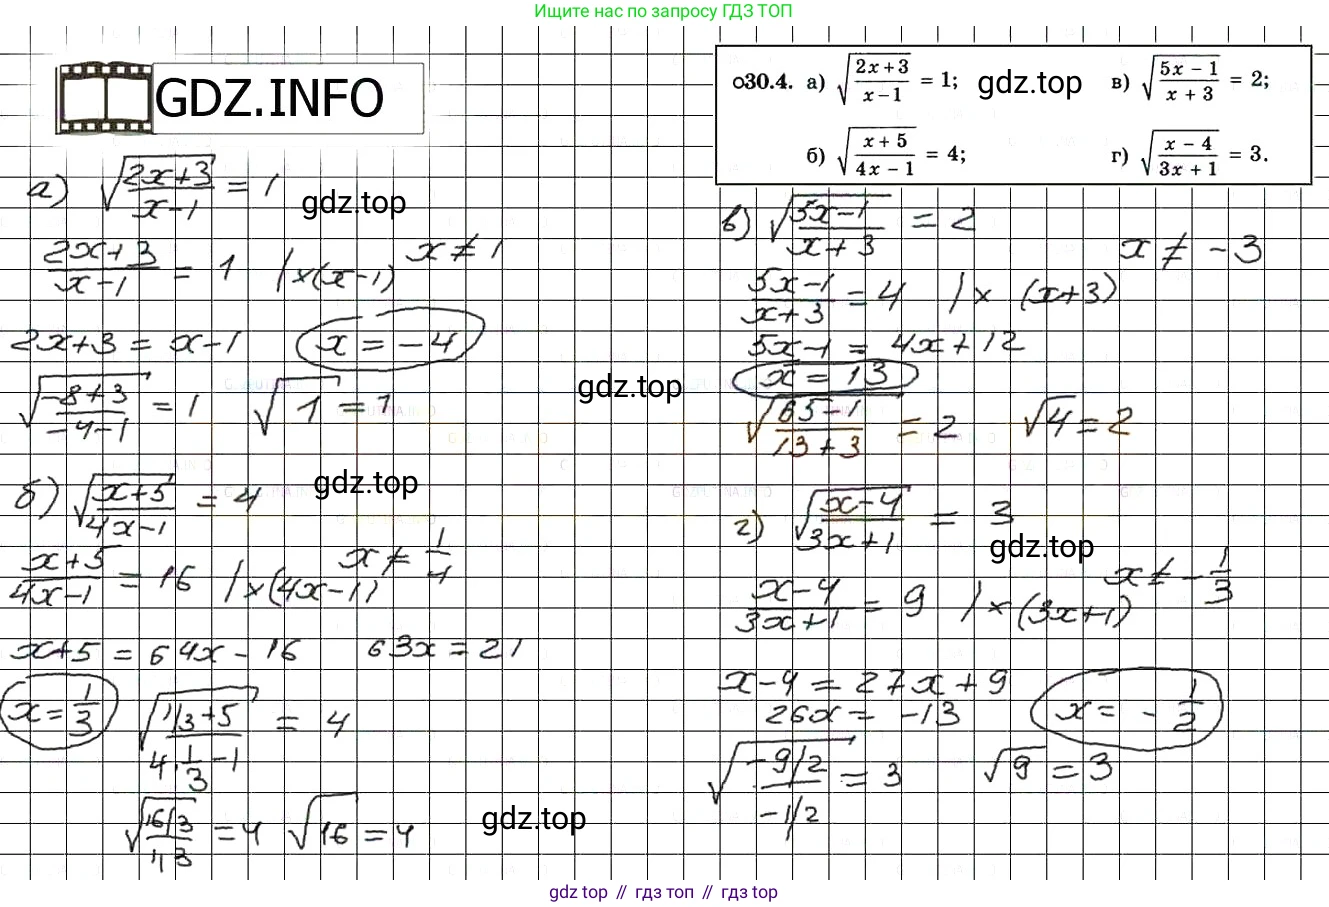 Ищите нас по запросу ГДЗ ТОП
GDZ.INFO
о30.4. а) √((2x + 3)/(x − 1)) = 1; в) √((5x − 1)/(x + 3)) = 2;
б) √((x + 5)/(4x − 1)) = 4; г) √((x − 4)/(3x + 1)) = 3.
gdz.top
а) √((2x+3)/(x−1)) = 1
gdz.top
(2x+3)/(x−1) = 1 | ×(x−1) x ≠ 1
2x+3 = x−1 x = −4
√((−8+3)/(−4−1)) = 1 √1 = 1
gdz.top
б) √((x+5)/(4x−1)) = 4
gdz.top
(x+5)/(4x−1) = 16 | ×(4x−1) x ≠ 1/4
x+5 = 64x − 16 63x = 21
x = 1/3 √((1/3+5)/(4·1/3−1)) = 4
√((16/3)/(1/3)) = 4 √16 = 4
gdz.top
в) √((5x−1)/(x+3)) = 2
x ≠ −3
(5x−1)/(x+3) = 4 | × (x+3)
5x−1 = 4x+12
x = 13
√((65−1)/(13+3)) = 2 √4 = 2
г) √((x−4)/(3x+1)) = 3
gdz.top
x ≠ −1/3
(x−4)/(3x+1) = 9 | × (3x+1)
x−4 = 27x+9
26x = −13 x = −1/2
√((−9/2)/(−1/2)) = 3 √9 = 3
gdz top // гдз топ // гдз top